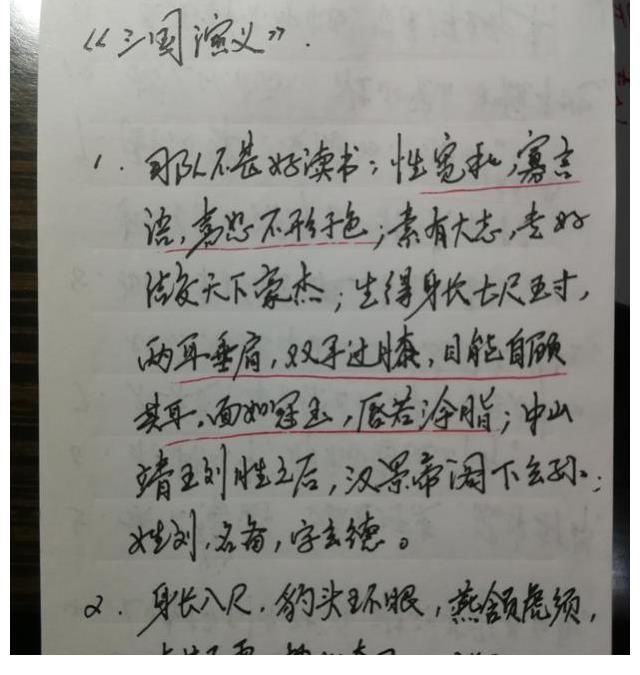 《三国演义》.
1. 那队不甚好读书；性宽和，寡言
语，喜怒不形于色；素有大志，专好
结交天下豪杰；生得身长七尺五寸，
两耳垂肩，双手过膝，目能自顾
其耳，面如冠玉，唇若涂脂；中山
靖王刘胜之后，汉景帝阁下玄孙；
姓刘，名备，字玄德。
2. 身长八尺，豹头环眼，燕颔虎须，